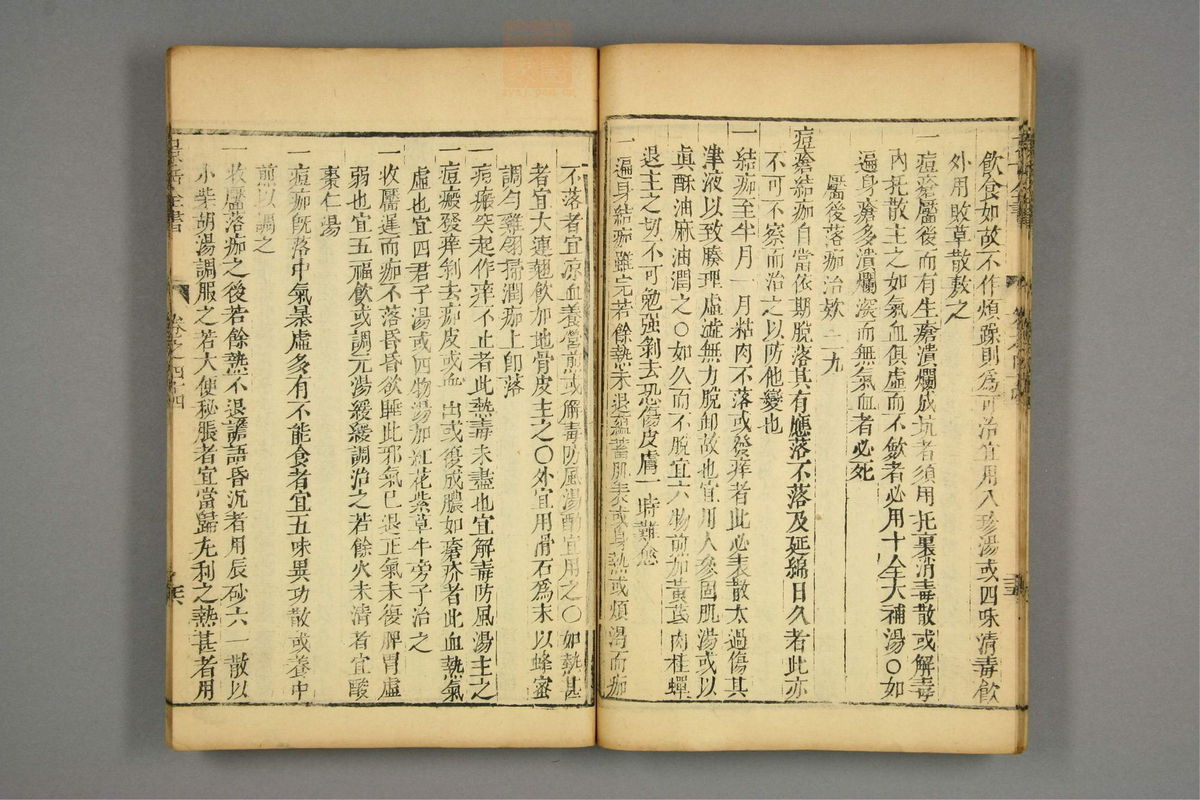 飲食如故不作煩躁則爲可治宜用人參湯或四味消毒飲
外用敗草散敷之
一痘瘡靨後而有生瘡潰爛成坑者須用托裏消毒散或解毒
內托散主之如氣血俱虛而不斂者必用十全大補湯〇如
遍身瘡多潰爛深而無氣血者必死
靨後落痂治欵二九
痘瘡結痂自當依期脫落其有應落不落及延綿日久者此亦
不可不察而治之以防他變也
一結痂至半月一月粘肉不落或發痒者此必表散太過傷其
津液以致腠理虛澁無力脫卸故也宜用人參固肌湯或以
眞酥油麻油潤之〇如久而不脫宜六物煎加黃芪肉桂蟬
退主之切不可勉強剝去恐傷皮膚一時難愈
一遍身結痂雖完若餘熱未退蘊蓄肌表或身熱或煩渴而痂
不落者宜凉血養營煎或解毒防風湯酌宜用之〇如熱甚
者宜大連翹飲加地骨皮主之〇外宜用滑石爲末以蜂蜜
調勻雞翎掃潤痂上卽落
一痂瘢突起作痒不止者此熱毒未盡也宜解毒防風湯主之
一痘瘢發痒剝去痂皮或血出或復成膿如瘡疥者此血熱氣
虛也宜四君子湯或四物湯加紅花紫草牛旁子治之
一收靨遲而痂不落昏昏欲睡此邪氣已退正氣未復脾胃虛
弱也宜五福飲或調元湯緩緩調治之若餘火未清者宜酸
棗仁湯
一痘痂旣落中氣暴虛多有不能食者宜五味異功散或養中
煎以調之
一收靨落痂之後若餘熱不退譫語昏沉者用辰砂六一散以
小柴胡湯調服之若大便秘脹者宜當歸丸利之熱甚者用
卷之四十四